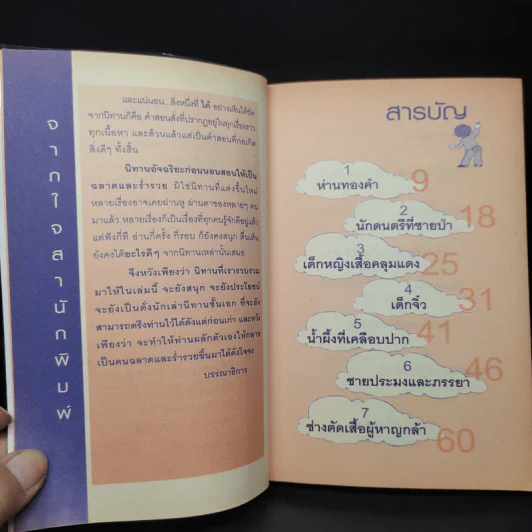 จากใจสำนักพิมพ์
และแน่นอน...สิ่งหนึ่งที่ ได้ อย่างเห็นได้ชัด
จากนิทานก็คือ คำสอนสั่งที่ปรากฏอยู่ในทุกเรื่องราว
ทุกเนื้อหา และล้วนแล้วแต่เป็นคำสอนที่ก่อเกิด
สิ่งดีๆ ทั้งสิ้น
นิทานอัจฉริยะก่อนนอนสอนให้เป็น
ฉลาดและร่ำรวย มิใช่นิทานที่แต่งขึ้นใหม่
หลายเรื่องอาจเคยผ่านหู ผ่านตาของหลายๆ คน
มาแล้ว หลายเรื่องก็เป็นเรื่องที่ทุกคนรู้จักดีอยู่แล้ว
แต่ฟังกี่ที อ่านกี่ครั้ง กี่รอบ ก็ยังคงสนุก ตื่นเต้น
ยังคงได้อะไรดีๆ จากนิทานเหล่านั้นเสมอ
จึงหวังเพียงว่า นิทานที่เรารวบรวม
มาให้ในเล่มนี้ จะยังสนุก จะยังประโยชน์
จะยังเป็นดั่งนักเล่านิทานชั้นเอก ที่จะยัง
สามารถตรึงท่านไว้ได้ดังแต่ก่อนเก่า และหวัง
เพียงว่า จะทำให้ท่านผลักตัวเองให้กลาย
เป็นคนฉลาดและร่ำรวยขึ้นมาได้ดังใจจง
บรรณาธิการ
สารบัญ
1
ห่านทองคำ 9
2
นักดนตรีที่ชายป่า 18
3
เด็กหญิงเสื้อคลุมแดง 25
4
เด็กจิ๋ว 31
5
น้ำผึ้งที่เคลือบปาก 41
6
ชายประมงและภรรยา 46
7
ช่างตัดเสื้อผู้หาญกล้า 60